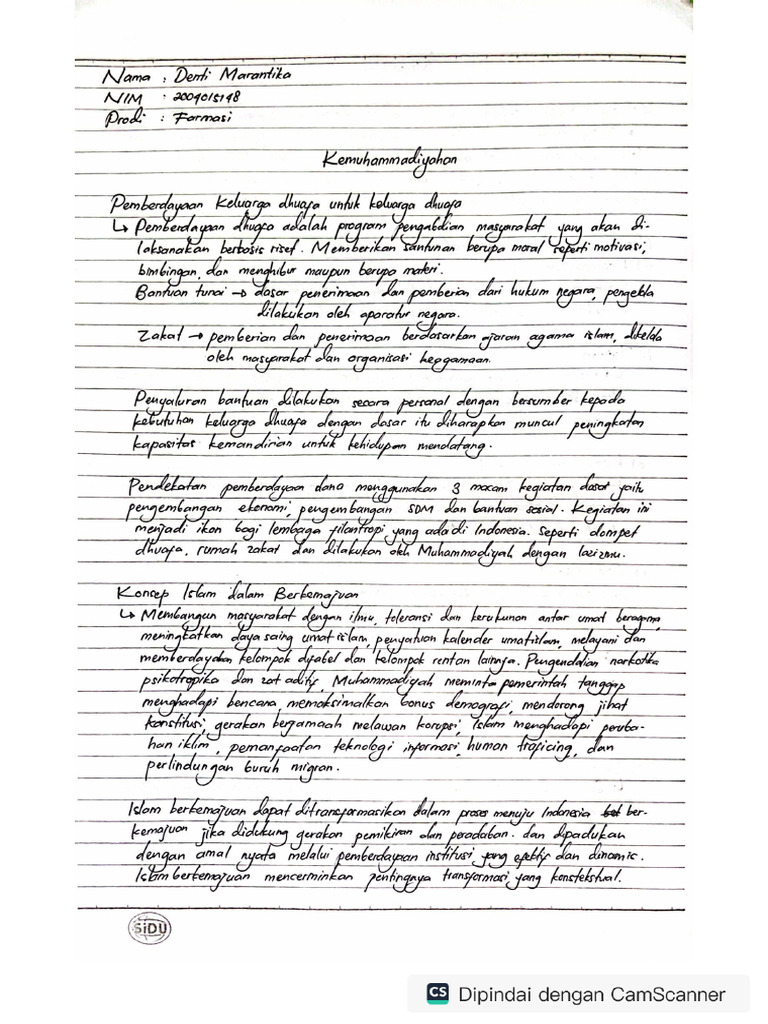 Nama : Denti Marantika
NIM : 2004015148
Prodi : Farmasi
Kemuhammadiyahan
Pemberdayaan Keluarga dhuafa untuk keluarga dhuafa
↳ Pemberdayaan dhuafa adalah program pengabdian masyarakat yang akan di-
laksanakan berbasis riset. Memberikan santunan berupa moral seperti motivasi,
bimbingan, dan menghibur maupun berupa materi.
Bantuan tunai → dasar penerimaan dan pemberian dari hukum negara,
dilakukan oleh aparatur negara.
Zakat → pemberian dan penerimaan berdasarkan ajaran agama islam, dikelola
oleh masyarakat dan organisasi
Penyaluran bantuan dilakukan secara personal dengan bersumber kepada
kebutuhan keluarga dhuafa dengan dasar itu diharapkan muncul peningkatan
kapasitas kemandirian untuk kehidupan mendatang.
Pendekatan pemberdayaan dana menggunakan 3 macam kegiatan dasar yaitu
pengembangan ekonomi, pengembangan SDM dan bantuan sosial. Kegiatan ini
menjadi ikon bagi lembaga filantropi yang ada di Indonesia. Seperti dompet
dhuafa, rumah zakat dan dilakukan oleh Muhammadiyah dengan lazizmu.
Konsep Islam dalam Berkemajuan
↳ Membangun masyarakat dengan ilmu, toleransi dan kerukunan antar umat beragama,
meningkatkan daya saing umat islam, penyatuan kalender umat islam, melayani dan
memberdayakan kelompok difabel dan kelompok rentan lainnya. Pengendalian narkotika
psikotropika dan zat aditif, Muhammadiyah meminta pemerintah tanggap
menghadapi bencana, memaksimalkan bonus demografi, mendorong jihat
konstitusi, gerakan berjamaah melawan korupsi, Islam menghadapi peruba-
han iklim, pemanfaatan teknologi informasi, human traficing, dan
perlindungan buruh migran.
Islam berkemajuan dapat ditransformasikan dalam proses menuju Indonesia ber-
kemajuan jika didukung gerakan pemikiran dan peradaban. dan dipadukan
dengan amal nyata melalui pemberdayaan institusi yang efektif dan dinamis.
Islam berkemajuan mencerminkan pentingnya transformasi yang konstekstual.
SiDU
CS Dipindai dengan CamScanner